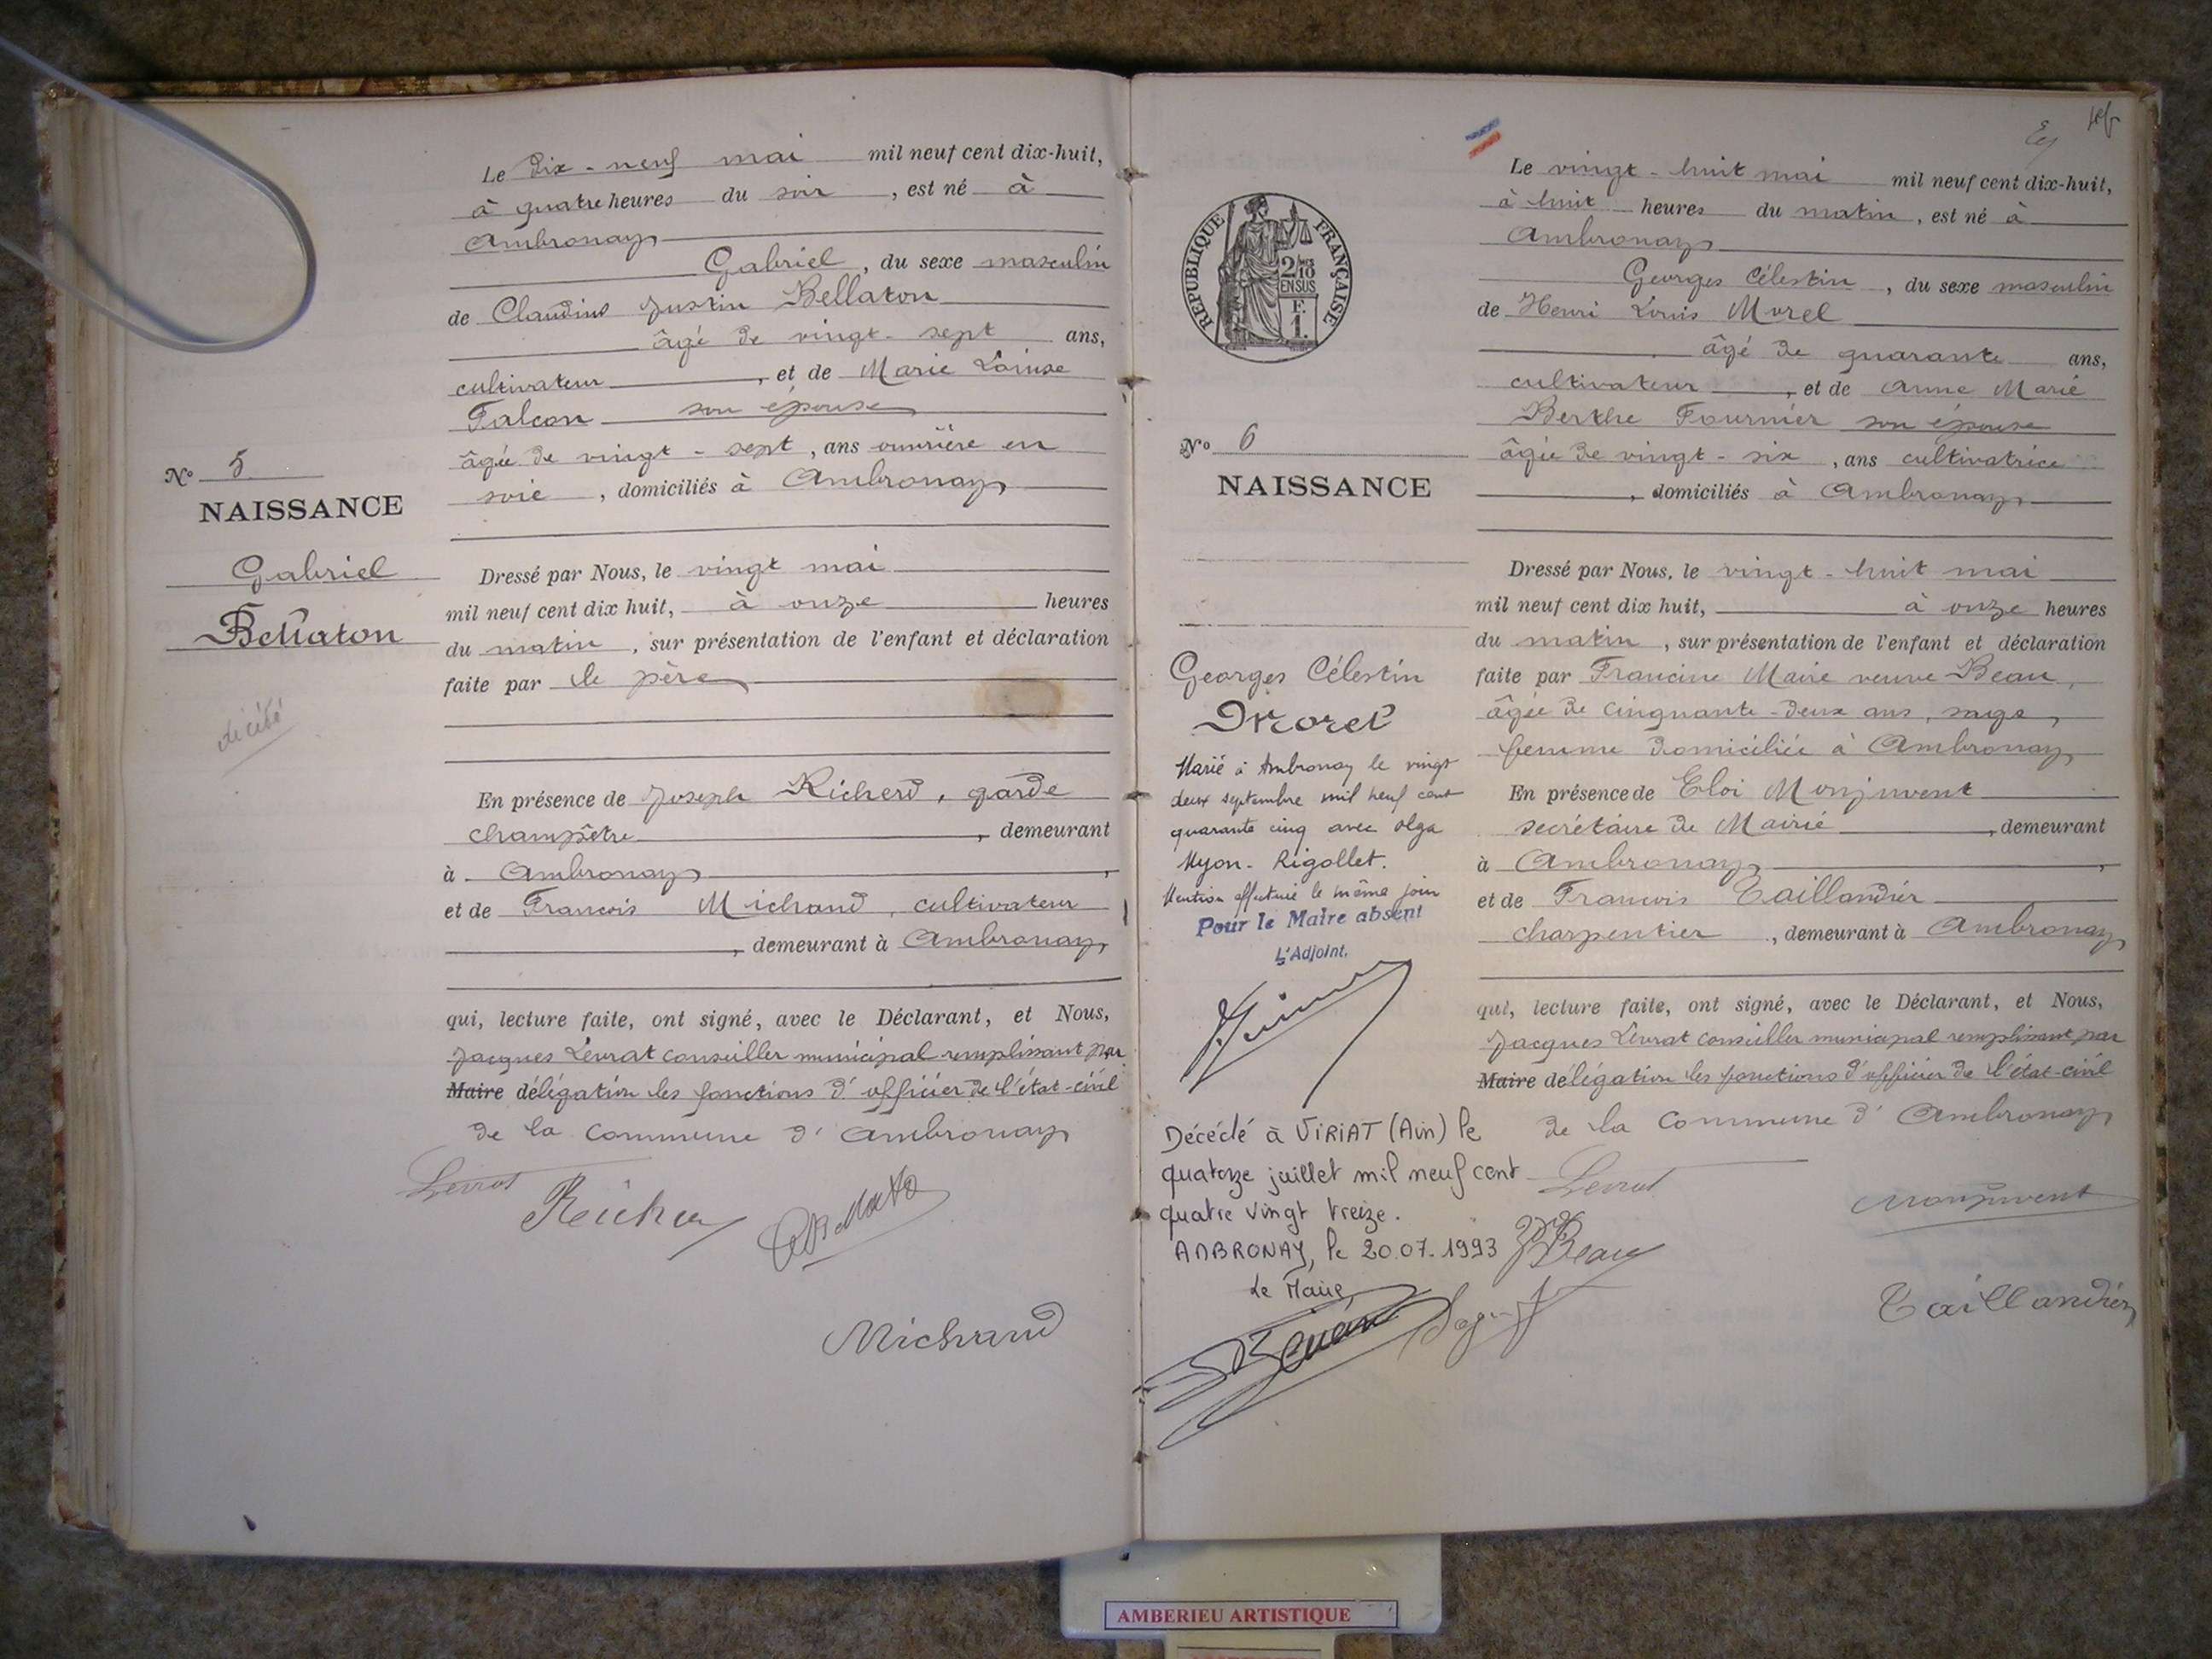 Le dix-neuf mai mil neuf cent dix-huit,
à quatre heures du soir, est né à
Ambronay
Gabriel, du sexe masculin
de Claudius Justin Bellaton
âgé de vingt-sept ans,
cultivateur, et de Marie Louise
Falcon son épouse
âgée de vingt-sept, ans ouvrière en
soie, domiciliés à Ambronay
N° 5
NAISSANCE
Gabriel
Bellaton
décédé
Dressé par Nous, le vingt mai
mil neuf cent dix huit, à onze heures
du matin, sur présentation de l'enfant et déclaration
faite par le père
En présence de Joseph Richerd, garde
champêtre, demeurant
à Ambronay,
et de Francois Michaud, cultivateur
, demeurant à Ambronay
qui, lecture faite, ont signé, avec le Déclarant, et Nous,
Jacques Levrat conseiller municipal remplissant par
Maire délégation les fonctions d'officier de l'état-civil
de la commune d'Ambronay
Levrat
Michaud
Le vingt-huit mai mil neuf cent dix-huit,
à huit heures du matin, est né à
Ambronay
Georges Célestin, du sexe masculin
de Henri Louis Morel
âgé de quarante ans,
cultivateur, et de Anne Marie
Berthe Fournier son épouse
âgée de vingt-six, ans cultivatrice
, domiciliés à Ambronay
REPUBLIQUE FRANÇAISE
2/10
EN SUS
F.
1.
N° 6
NAISSANCE
Georges Célestin
Morel
Marié à Ambronay le vingt
deux septembre mil neuf cent
quarante cinq avec Olga
Myon-Rigollet.
Mention effectuée le même jour
Pour le Maire absent
L'Adjoint,
Décédé à VIRIAT (Ain) le
quatorze juillet mil neuf cent
quatre vingt treize.
AMBRONAY, le 20.07.1993
Le Maire
Dressé par Nous, le vingt-huit mai
mil neuf cent dix huit, à onze heures
du matin, sur présentation de l'enfant et déclaration
faite par Francine Maire veuve Beau,
âgée de cinquante-deux ans, sage
femme domiciliée à Ambronay
En présence de Eloi Monjuvent
secrétaire de Mairie, demeurant
à Ambronay,
et de Francois Taillandier
charpentier, demeurant à Ambronay
qui, lecture faite, ont signé, avec le Déclarant, et Nous,
Jacques Levrat conseiller municipal remplissant par
Maire délégation les fonctions d'officier de l'état-civil
de la commune d'Ambronay
Levrat
Monjuvent
Beau
Taillandier
AMBERIEU ARTISTIQUE